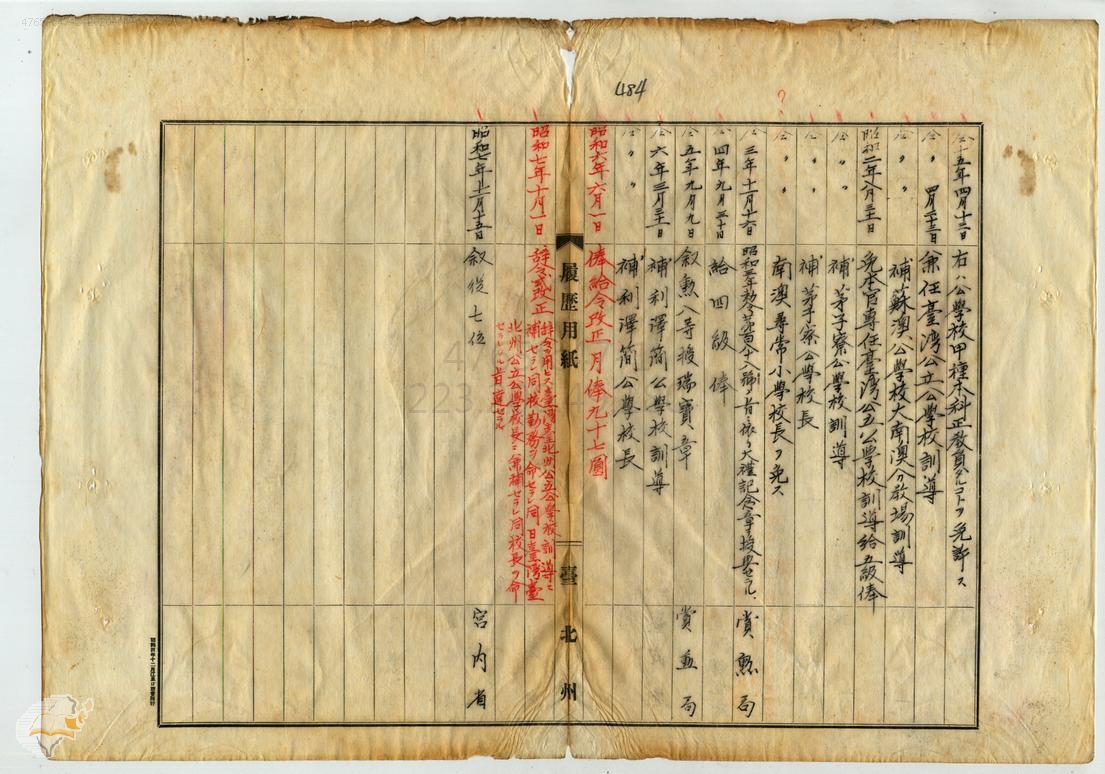 484
仝十五年四月十三日 右ハ公學校甲種本科正教員タルコトヲ免許ス
仝〃四月二十三日 兼任臺灣公立公學校訓導
仝〃〃 補蘇澳公學校大南澳分教場訓導
昭和二年八月三十一日 免本官專任臺灣公立公學校訓導給五級俸
仝〃〃 補茅子寮公學校訓導
仝〃〃 補茅子寮公學校長
仝〃〃 南澳尋常小學校長ヲ免ス
仝三年十一月十六日 昭和三年勅令第百八十八號ノ旨ニ依リ大禮記念章ヲ授與セラル 賞勲局
仝四年九月三十日 給四級俸
仝五年九月九日 敘勲八等授瑞寶章 賞勲局
仝六年三月三十一日 補利澤簡公學校訓導
仝〃〃 補利澤簡公學校長
昭和六年六月一日 俸給令改正 月俸九十七圓
履歷用紙 臺北州
昭和七年十月一日 辞令式改正
辞令ヲ用ヒス臺灣臺北州公立公學校訓導ニ
補セラレ同校勤務ヲ命セラレ同日臺灣臺
北州公立公學校長ニ兼補セラレ同校長ヲ命
セラレタル旨達セラル
昭和七年十二月十五日 敘從七位 宮内省